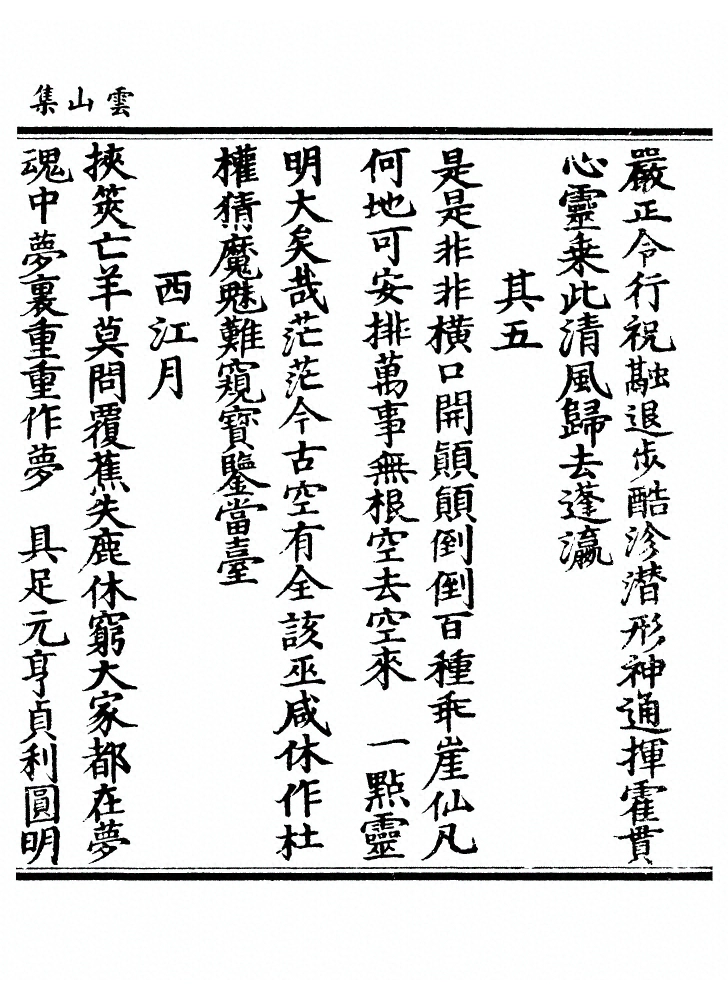 雲山集
嚴正令行祝融退步酷沴潛形神通揮霍貫
心靈乗此清風歸去蓬瀛
其五
是是非非橫口開顚顚倒倒百種乖崖仙凡
何地可安排萬事無根空去空來　一點靈
明大矣哉茫茫今古空有全該巫咸休作杜
權猜魔魅難窺寶鑒當臺
西江月
挾筴亡羊莫問覆蕉失鹿休窮大家都在夢
魂中夢裏重重作夢　具足元亨貞利圓明